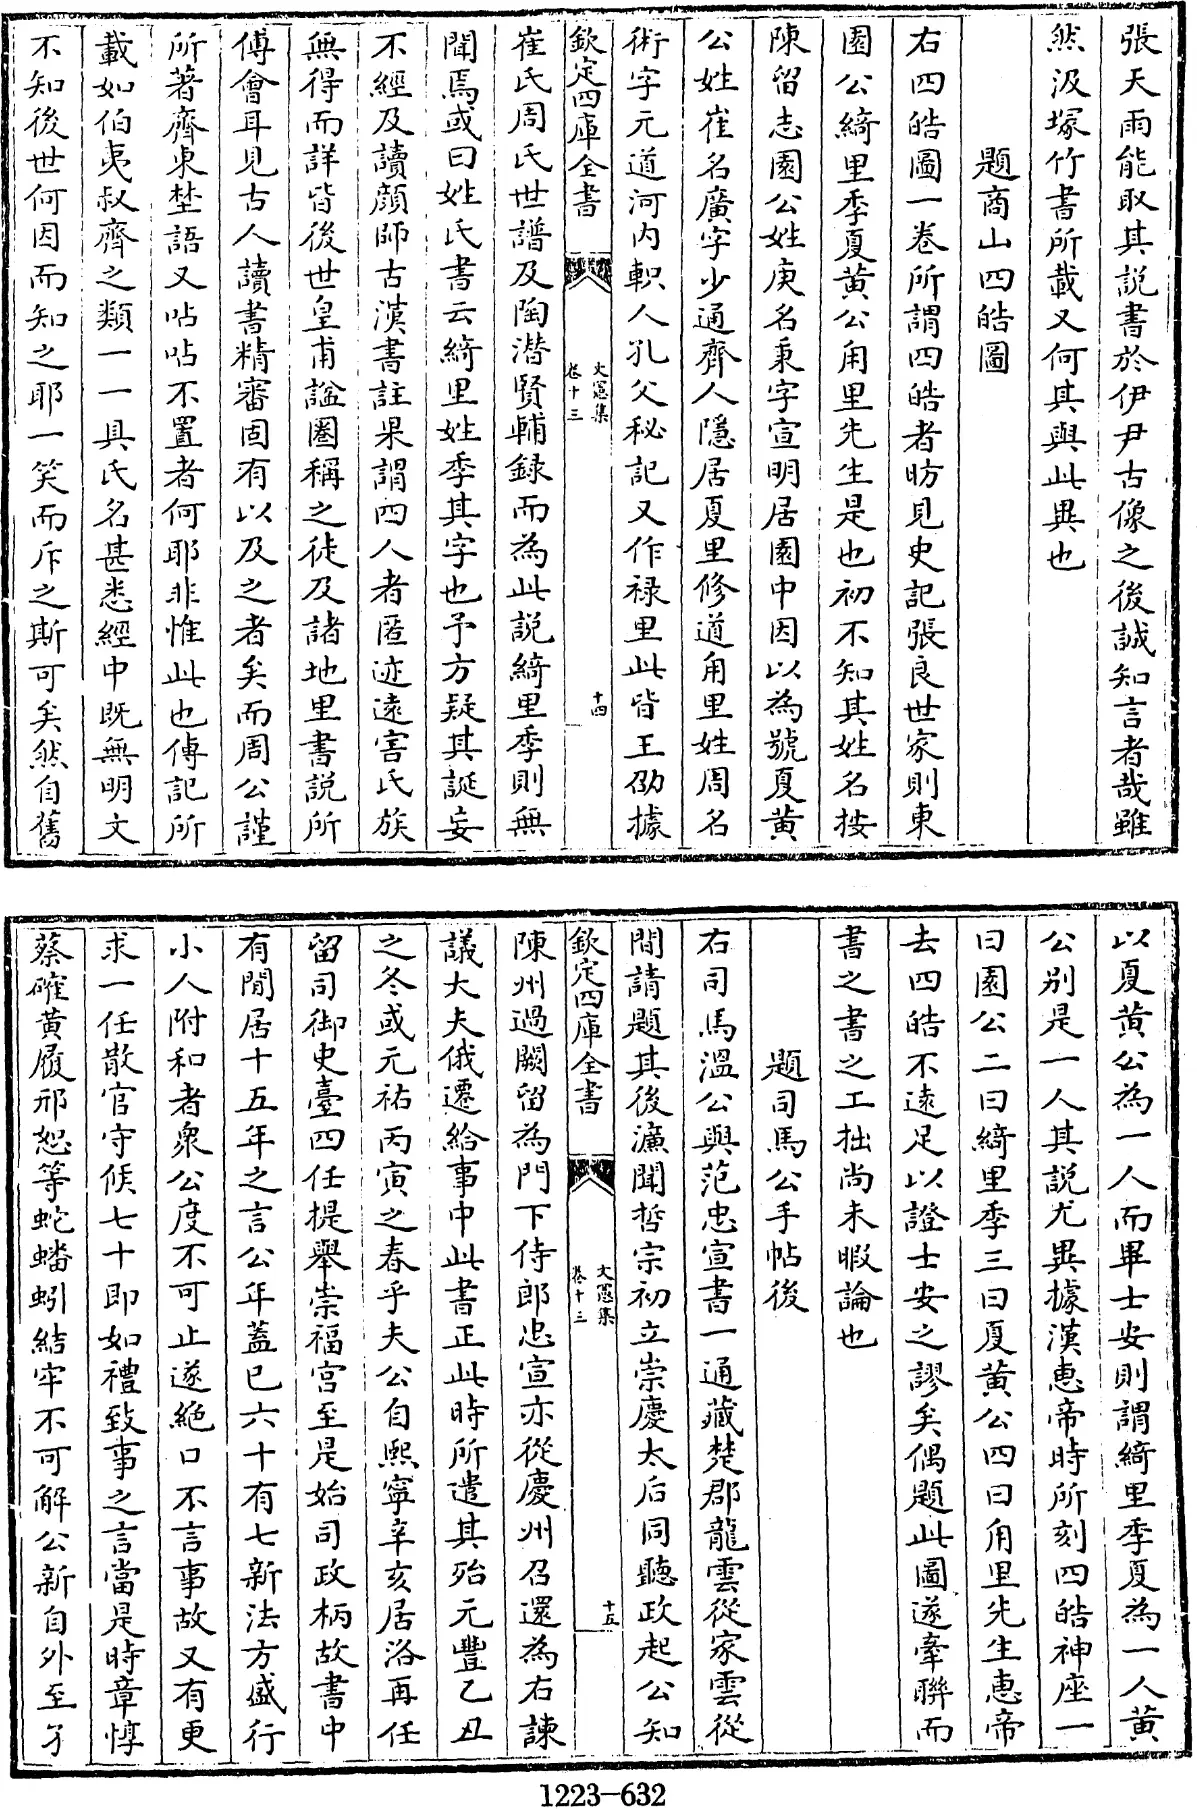 張天雨能取其説書於伊尹古像之後誠知言者哉雖
然汲塚竹書所載又何其與此異也
題商山四皓圖
右四皓圖一卷所謂四皓者昉見史記張良世家則東
園公綺里季夏黄公甪里先生是也初不知其姓名按
陳留志園公姓庾名秉字宣明居園中因以為號夏黄
公姓崔名廣字少通齊人隱居夏里修道甪里姓周名
術字元道河内軹人孔父秘記又作禄里此皆王劭據
欽定四庫全書
文憲集
卷十三
十四
崔氏周氏世譜及陶潜賢輔録而為此説綺里季則無
聞焉或曰姓氏書云綺里姓季其字也予方疑其誕妄
不經及讀顔師古漢書註果謂四人者匿迹逺害氏族
無得而詳皆後世皇甫謐圏稱之徒及諸地里書説所
傅會耳見古人讀書精審固有以及之者矣而周公謹
所著齊東埜語又呫呫不置者何耶非惟此也傳記所
載如伯夷叔齊之類一一具氏名甚悉經中既無明文
不知後世何因而知之耶一笑而斥之斯可矣然自舊
以夏黄公為一人而畢士安則謂綺里季夏為一人黄
公别是一人其説尤異據漢恵帝時所刻四皓神座一
曰園公二曰綺里季三曰夏黄公四曰甪里先生恵帝
去四皓不逺足以證士安之謬矣偶題此圖遂牽聯而
書之書之工拙尚未暇論也
題司馬公手帖後
右司馬溫公與范忠宣書一通藏楚郡龍雲從家雲從
間請題其後濂聞哲宗初立崇慶太后同聽政起公知
欽定四庫全書
文憲集
卷十三
十五
陳州過闕留為門下侍郎忠宣亦從慶州召還為右諫
議大夫俄遷給事中此書正此時所遣其殆元豐乙丑
之冬或元祐丙寅之春乎夫公自熙寧辛亥居洛再任
留司御史臺四任提舉崇福宫至是始司政柄故書中
有閒居十五年之言公年蓋已六十有七新法方盛行
小人附和者衆公度不可止遂絶口不言事故又有更
求一任散官守候七十即如禮致事之言當是時章惇
蔡確黄履邢恕等蛇蟠蚓結牢不可解公新自外至孑
1223—632